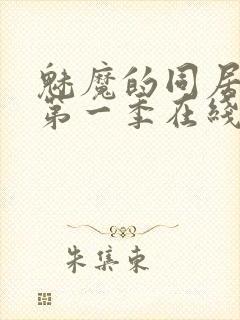 魅魔的同居
第一季在线
朱集东